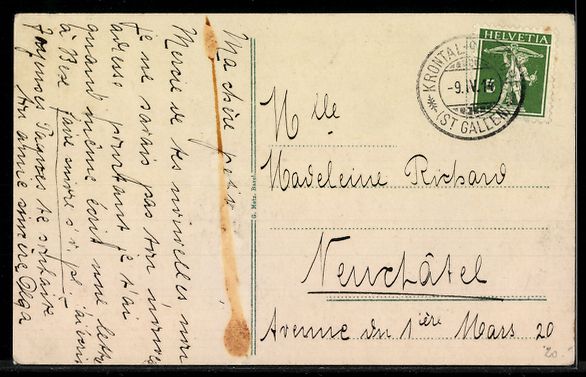 Ma chère petite
Merci de tes nouvelles mais
je ne savais pas ton
adresse pourtant je t'ai
quand même écrit une lettre
à Bex
Joyeuses Pâques te souhaite
ton amie sincère Olga
G. Metz, Basel
HELVETIA
5
KRONTAL
-9.IV.15
(ST GALLEN)
Mlle
Madeleine Richard
Neuchâtel
Avenue du 1ière Mars 20
20.-